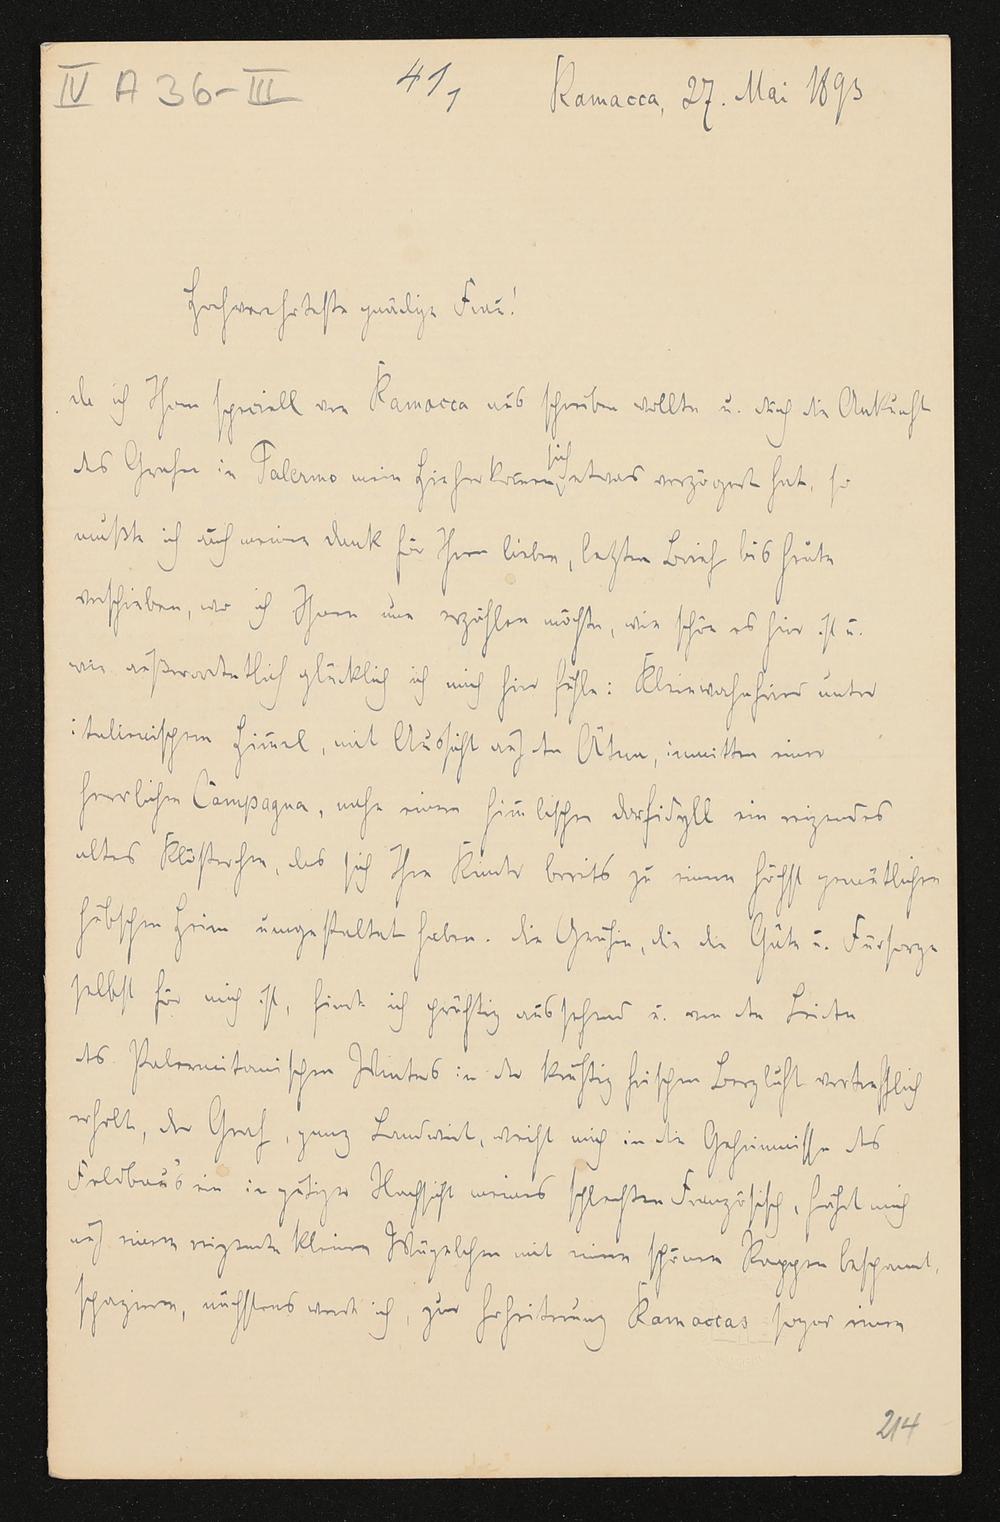 IV A 36-III
41,
Ramacca, 27. Mai 1893
Hochverehrteste gnädige Frau!
da ich Ihnen speciell von Ramacca aus schreiben wollte u. durch die Ankunft
des Grafen in Palermo mein Hieherkommen sich etwas verzögert hat, so
mußte ich auch meinen Dank für Ihren lieben, letzten Brief bis heute
verschieben, wo ich Ihnen nun erzählen möchte, wie schön es hier ist u.
wie außerordentlich glücklich ich mich hier fühle: Kleinwahnfried unter
italienischem Himmel, mit Aussicht auf den Ätna, inmitten einer
herrlichen Campagna, nahe einem himmlischen Dorfidyll ein reizendes
altes Klösterchen, das sich Ihre Kinder bereits zu einem höchst gemütlichen
hübschen Heim umgestaltet haben. Die Gräfin, die die Güte u. Fürsorge
selbst für mich ist, finde ich prächtig aussehend u. von den Leiden
des Palermitanischen Winters in der kräftig frischen Bergluft vortrefflich
erholt, der Graf, ganz Landwirt, weiht mich in die Geheimnisse des
Feldbau's ein in gütiger Nachsicht meines schlechten Französisch, fährt mich
auf einem reizenden kleinen Wägelchen mit einem schönen Rappen bespannt,
spazieren, nächstens werde ich, zur Erheiterung Ramaccas sogar einen
214